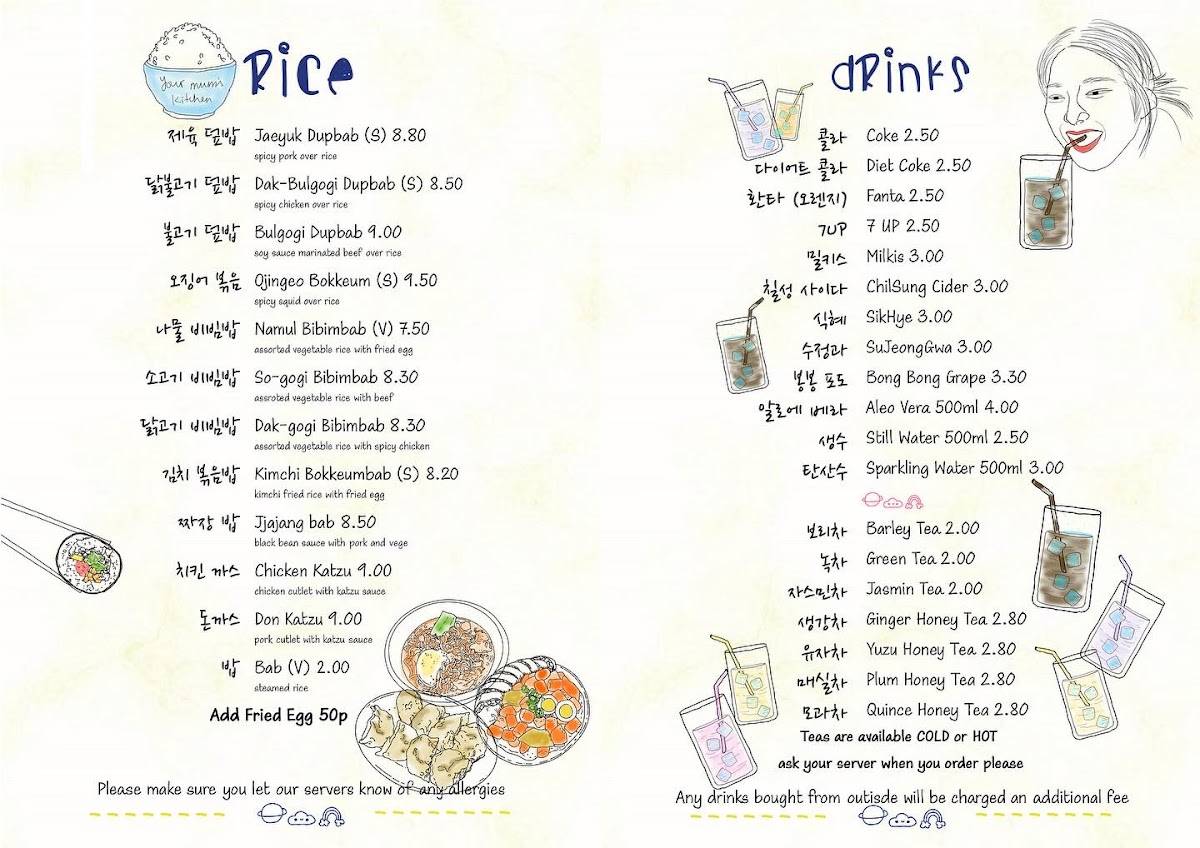 your mum's
kitchen
Rice
제육 덮밥 Jaeyuk Dupbab (S) 8.80
spicy pork over rice
닭불고기 덮밥 Dak-Bulgogi Dupbab (S) 8.50
spicy chicken over rice
불고기 덮밥 Bulgogi Dupbab 9.00
soy sauce marinated beef over rice
오징어 볶음 Ojingeo Bokkeum (S) 9.50
spicy squid over rice
나물 비빔밥 Namul Bibimbab (V) 7.50
assorted vegetable rice with fried egg
소고기 비빔밥 So-gogi Bibimbab 8.30
assroted vegetable rice with beef
닭고기 비빔밥 Dak-gogi Bibimbab 8.30
assorted vegetable rice with spicy chicken
김치 볶음밥 Kimchi Bokkeumbab (S) 8.20
kimchi fried rice with fried egg
짜장 밥 Jjajang bab 8.50
black bean sauce with pork and vege
치킨 까스 Chicken Katzu 9.00
chicken cutlet with katzu sauce
돈까스 Don Katzu 9.00
pork cutlet with katzu sauce
밥 Bab (V) 2.00
steamed rice
Add Fried Egg 50p
Please make sure you let our servers know of any allergies
drinks
콜라 Coke 2.50
다이어트 콜라 Diet Coke 2.50
환타 (오렌지) Fanta 2.50
7UP 7 UP 2.50
밀키스 Milkis 3.00
칠성 사이다 ChilSung Cider 3.00
식혜 SikHye 3.00
수정과 SuJeongGwa 3.00
봉봉 포도 Bong Bong Grape 3.30
알로에 베라 Aleo Vera 500ml 4.00
생수 Still Water 500ml 2.50
탄산수 Sparkling Water 500ml 3.00
보리차 Barley Tea 2.00
녹차 Green Tea 2.00
자스민차 Jasmin Tea 2.00
생강차 Ginger Honey Tea 2.80
유자차 Yuzu Honey Tea 2.80
매실차 Plum Honey Tea 2.80
모과차 Quince Honey Tea 2.80
Teas are available COLD or HOT
ask your server when you order please
Any drinks bought from outisde will be charged an additional fee